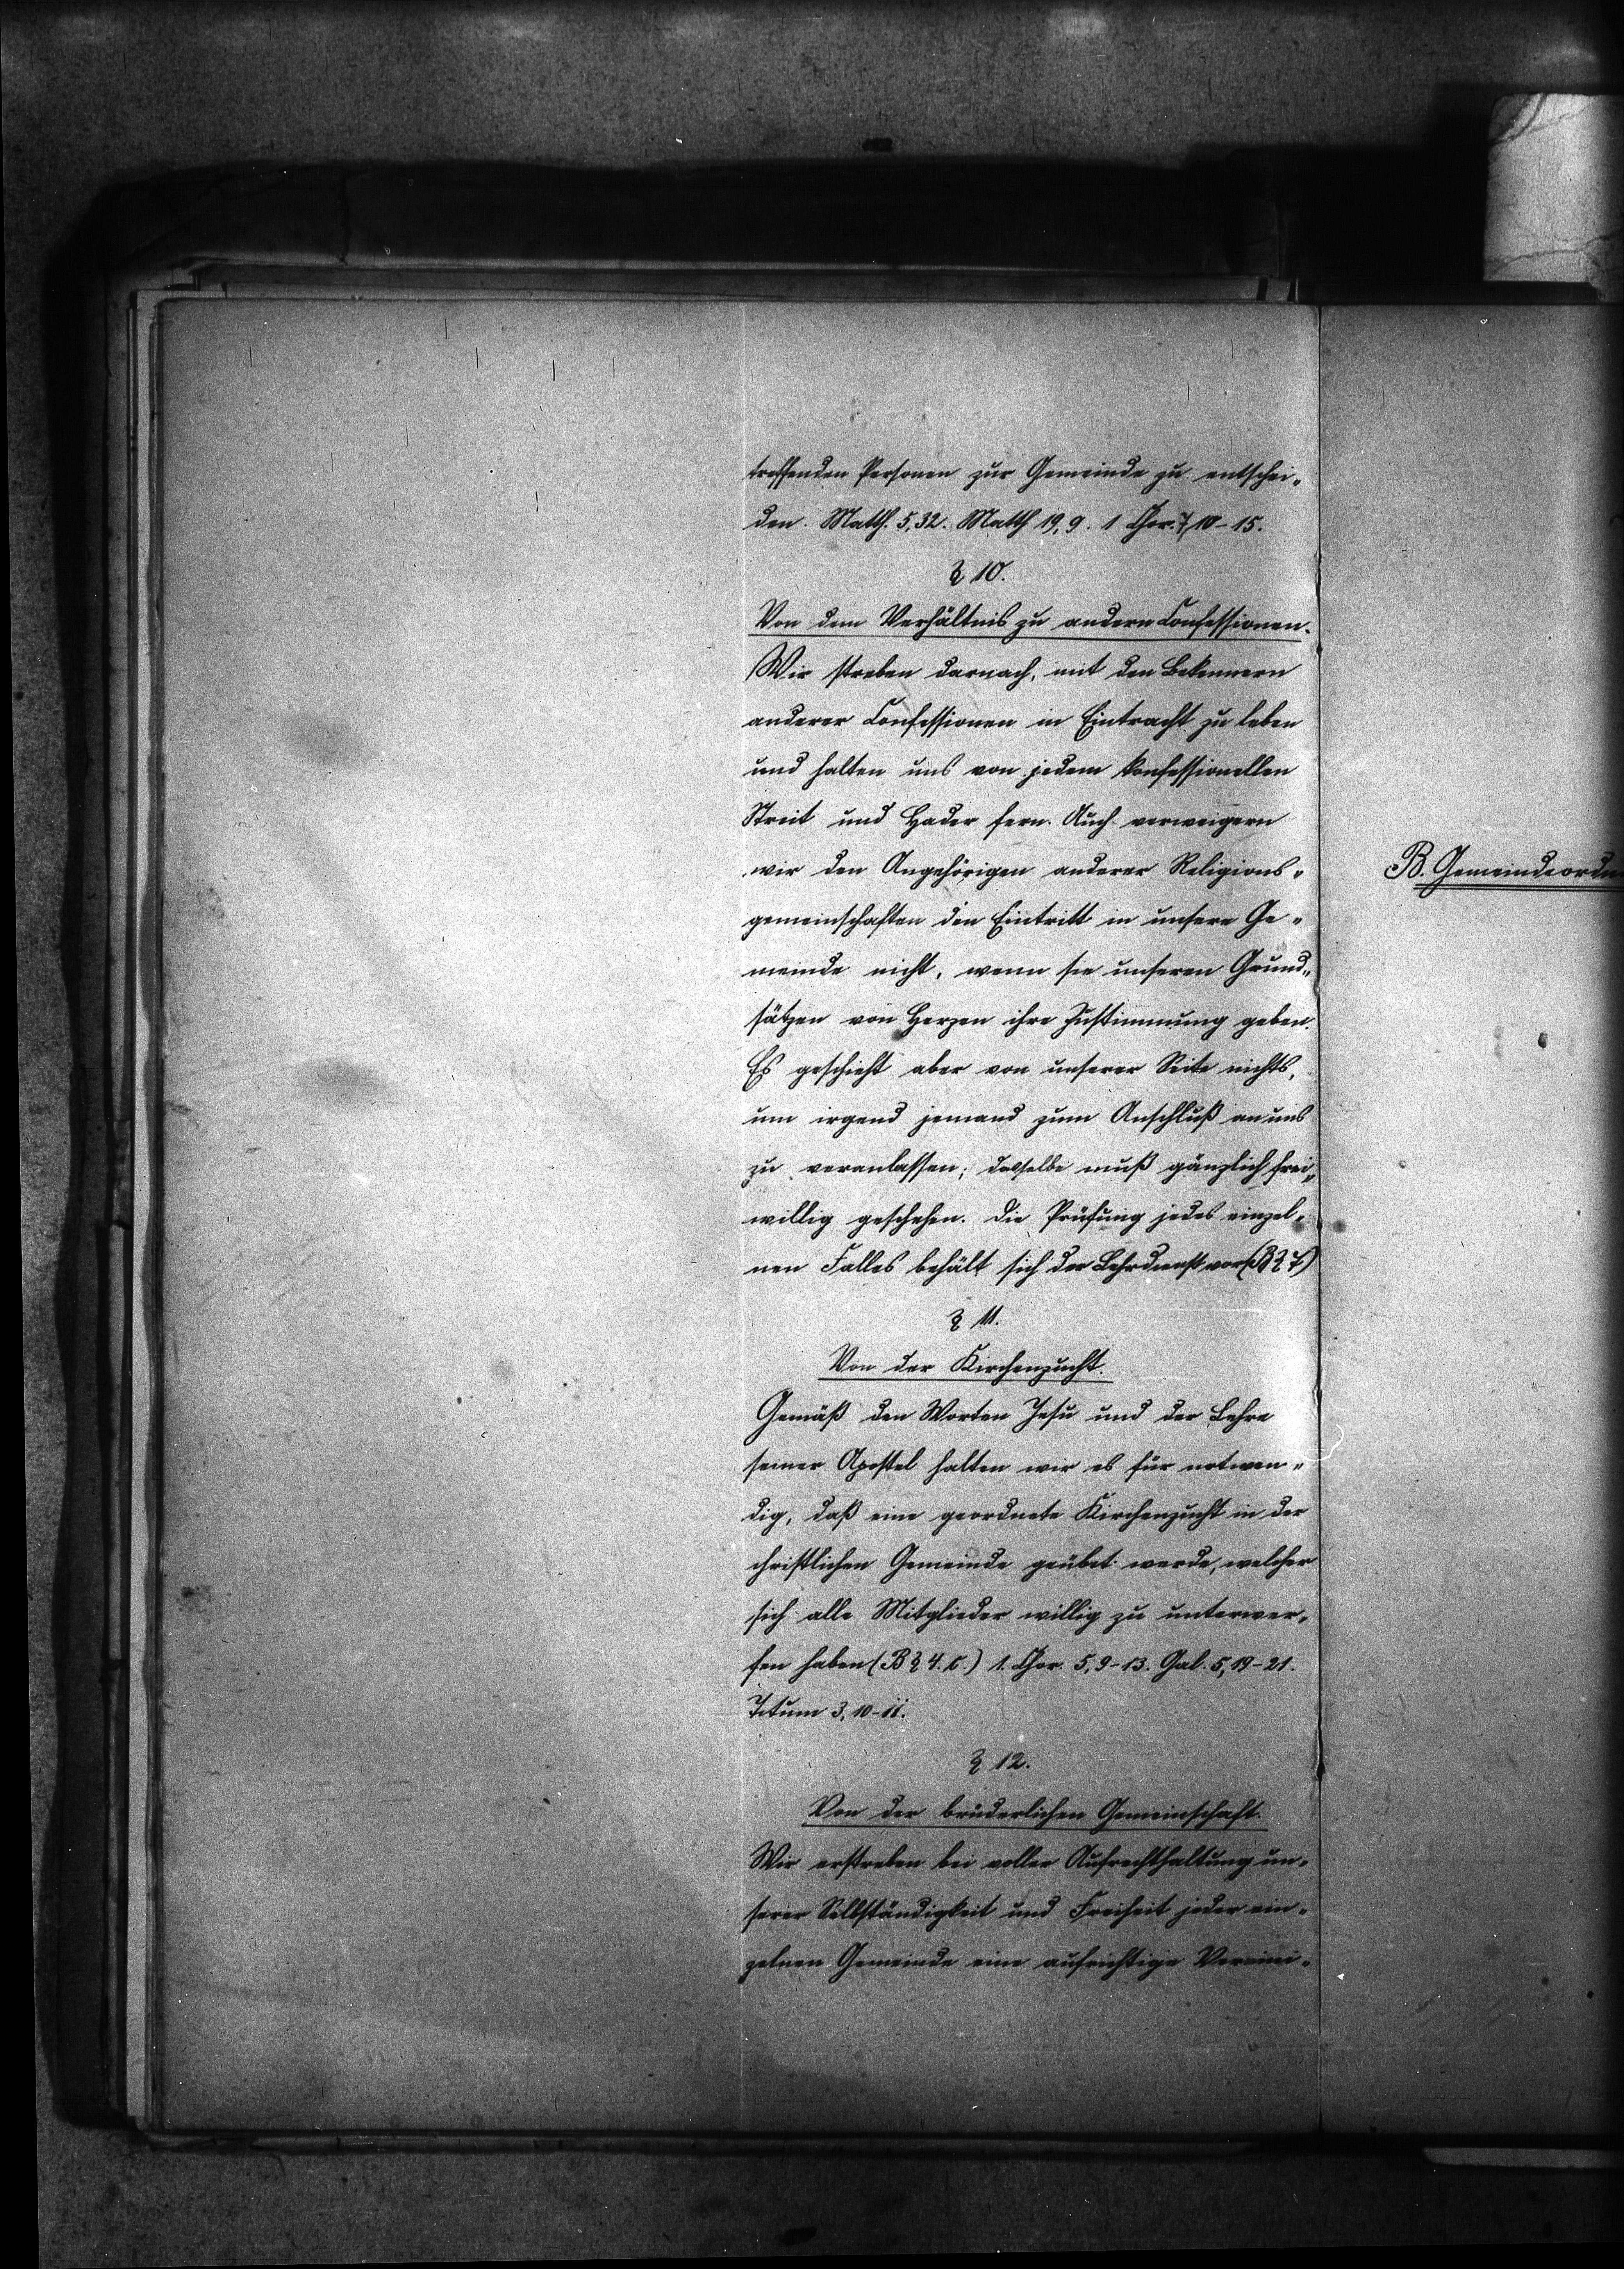 treffenden Personen zur Gemeinde zu entschei-
den. Matth. 5,32. Matth 19,9. 1 Chor. 7,10-15.
§ 10.
Von dem Verhältnis zu andern Confessionen.
Wir streben darnach, mit den Bekennern
anderer Confessionen in Eintracht zu leben
und halten uns von jedem konfessionellen
Streit und Hader fern. Auch verweigern
wir den Angehörigen anderer Religions-
gemeinschaften den Eintritt in unsere Ge-
meinde nicht, wenn sie unseren Grund-
sätzen von Herzen ihre Zustimmung geben.
Es geschieht aber von unserer Seite nichts,
um irgend jemand zum Anschluß an uns
zu veranlassen; dasselbe muß gänzlich frei-
willig geschehen. Die Prüfung jedes einzel-
nen Falles behält sich der Lehrdienst vor (B § 7)
§ 11.
Von der Kirchenzucht.
Gemäß den Worten Jesu und der Lehre
seiner Apostel halten wir es für notwen-
dig, daß eine geordnete Kirchenzucht in der
christlichen Gemeinde geübet werde, welcher
sich alle Mitglieder willig zu unterwer-
fen haben (B § 4. c.) 1. Chor. 5,9-13. Gal. 5,19-21.
Titum 3,10-11.
§ 12.
Von der brüderlichen Gemeinschaft.
Wir erstreben bei voller Aufrechthaltung un-
serer Selbständigkeit und Freiheit jeder ein-
zelnen Gemeinde eine aufrichtige Vereini-
B. Gemeindeordn